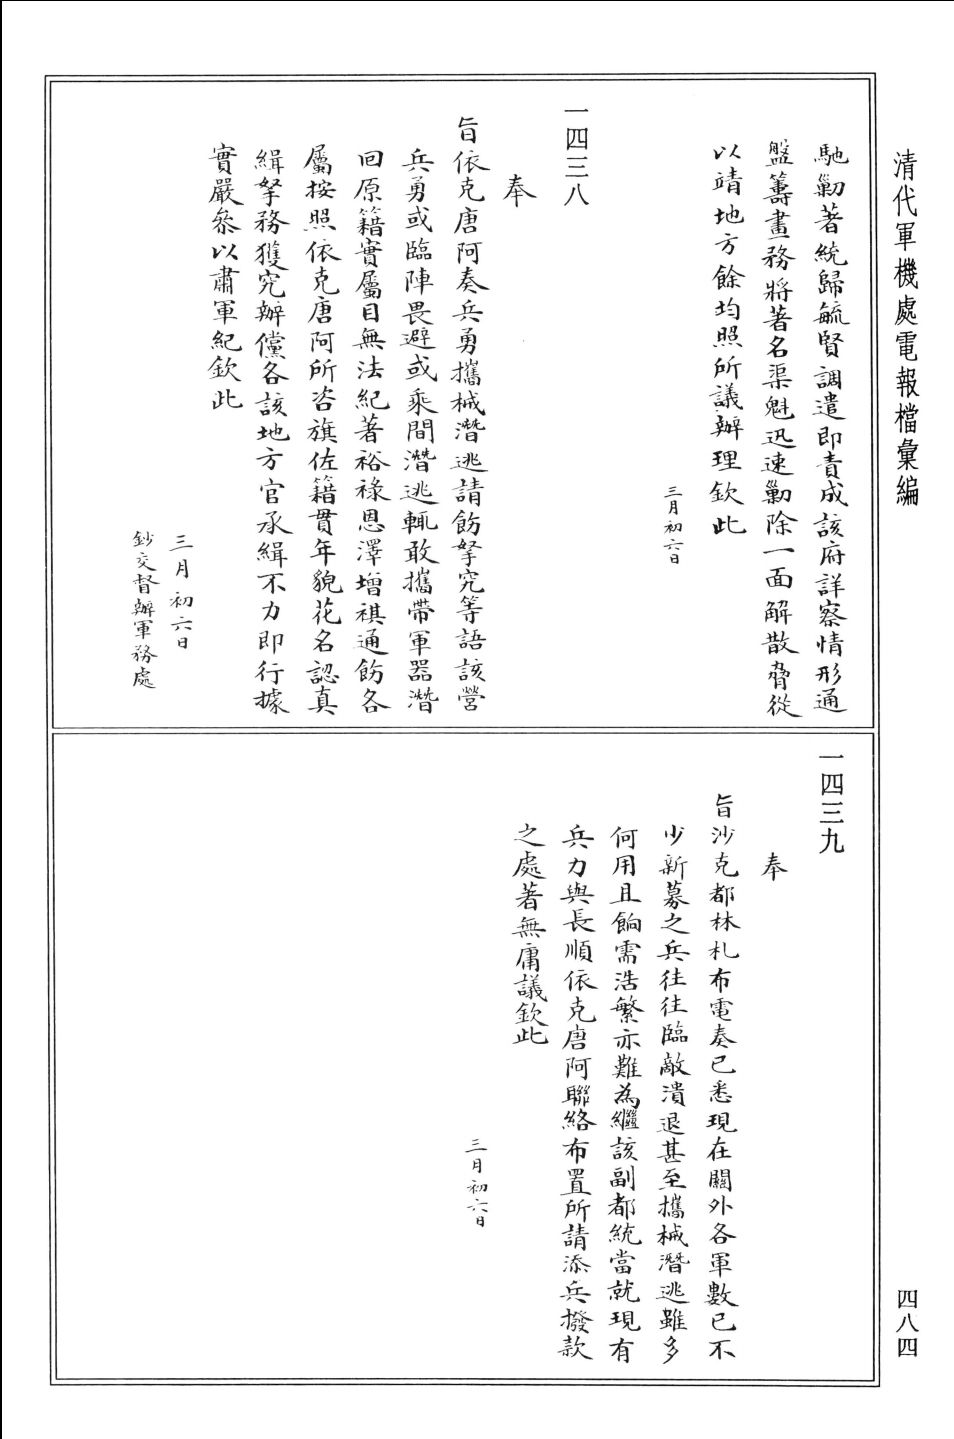 清代軍機處電報檔彙編
馳勦著統歸毓賢調遣即責成該府詳察情形通
盤籌畫務將著名渠魁迅速勦除一面解散脅從
以靖地方餘均照所議辦理欽此
三月初六日
一四三八
奉
旨依克唐阿奏兵勇攜械潛逃請飭拏究等語該營
兵勇或臨陣畏避或乘間潛逃輒敢攜帶軍器潛
回原籍實屬目無法紀著裕祿恩澤增祺通飭各
屬按照依克唐阿所咨旗佐籍貫年貌花名認真
緝拏務獲究辦儻各該地方官承緝不力即行據
實嚴參以肅軍紀欽此
三月初六日
鈔交督辦軍務處
一四三九
奉
旨沙克都林札布電奏已悉現在關外各軍數已不
少新募之兵往往臨敵潰退甚至攜械潛逃雖多
何用且餉需浩繁亦難為繼該副都統當就現有
兵力與長順依克唐阿聯絡布置所請添兵撥款
之處著無庸議欽此
三月初六日
四八四